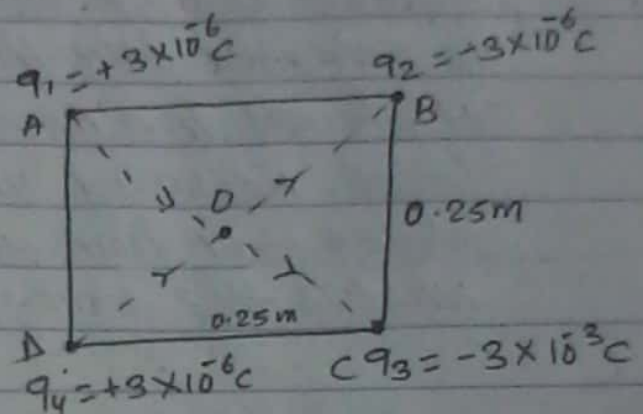 q₁ = +3×10⁻⁶C
q₂ = -3×10⁻⁶C
A
B
O
0.25m
0.25m
D
q₄ = +3×10⁻⁶C
C q₃ = -3×10⁻³C